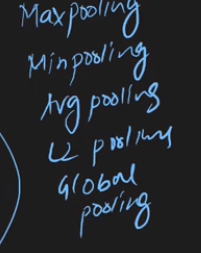 Maxpooling
Minpooling
Avg pooling
L2 pooling
Global
pooling